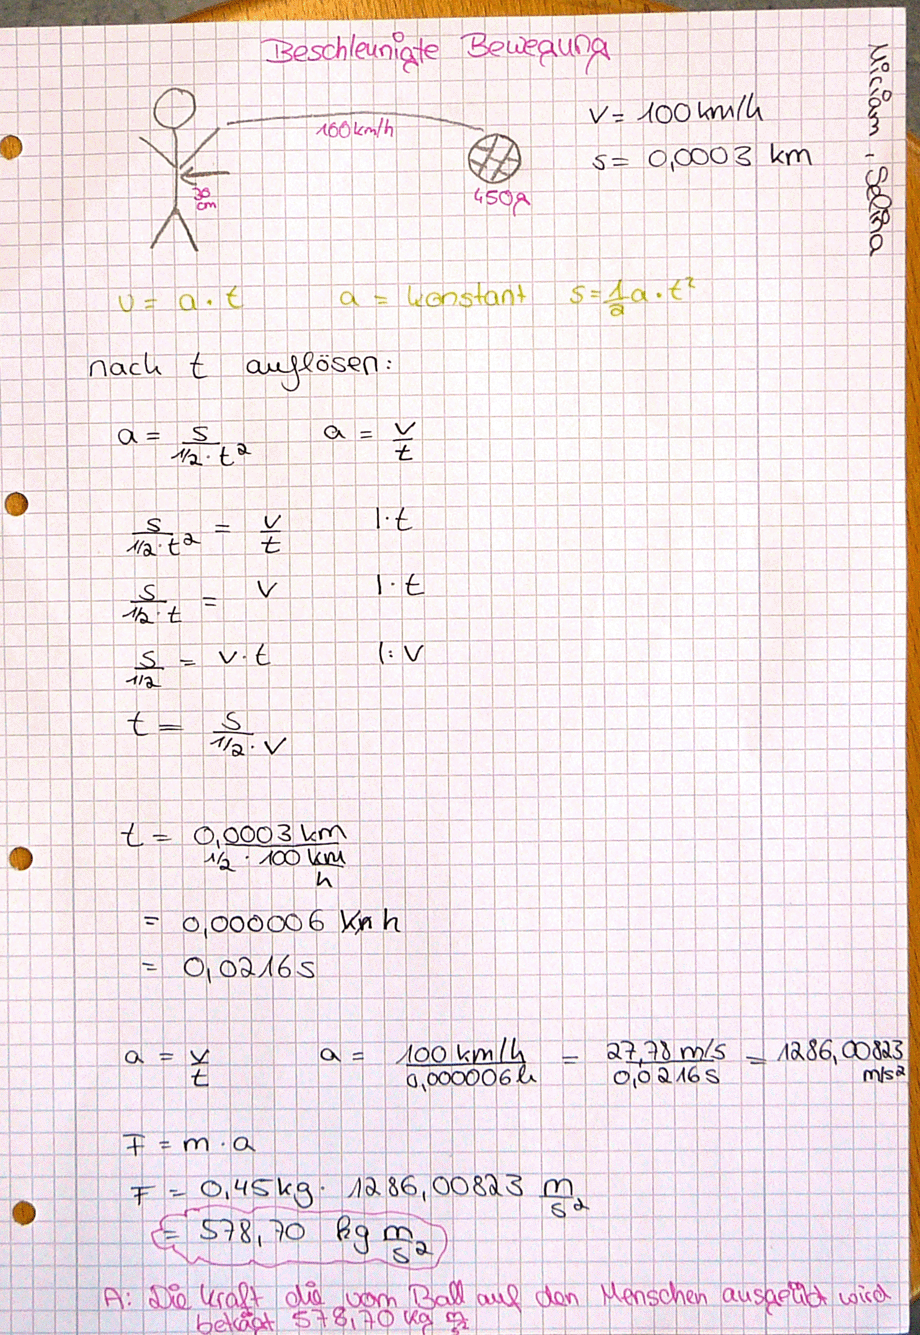 Beschleunigte Bewegung
Miriam, Seliha
100km/h
30
cm
450g
v = 100 km/h
s = 0,0003 km
v = a · t a = konstant s = 1/2 a · t²
nach t auflösen:
a = s/(1/2 · t²) a = v/t
s/(1/2 · t²) = v/t |· t
s/(1/2 · t) = v |· t
s/(1/2) = v · t |: v
t = s/(1/2 · v)
t = 0,0003 km/(1/2 · 100 km/h)
= 0,000006 h
= 0,0216 s
a = v/t a = 100 km/h/0,000006 h = 27,78 m/s/0,0216 s = 1286,00823 m/s²
F = m · a
F = 0,45 kg · 1286,00823 m/s²
= 578,70 kg m/s²
A: Die Kraft die vom Ball auf den Menschen ausgeübt wird
beträgt 578,70 kg m/s²